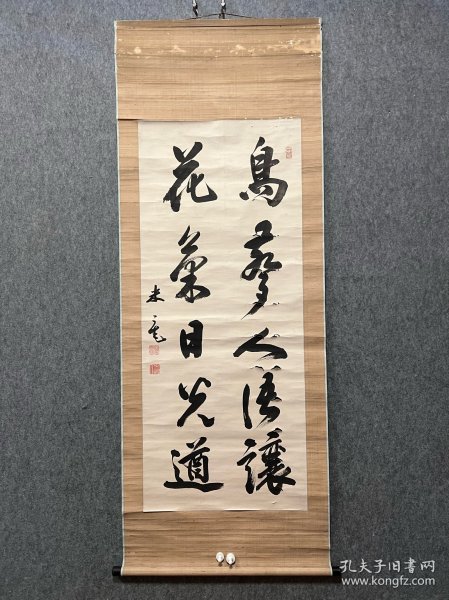 鳥聲人語讓
花氣日光遒
米庵
孔夫子旧书网
www.kongfz.com